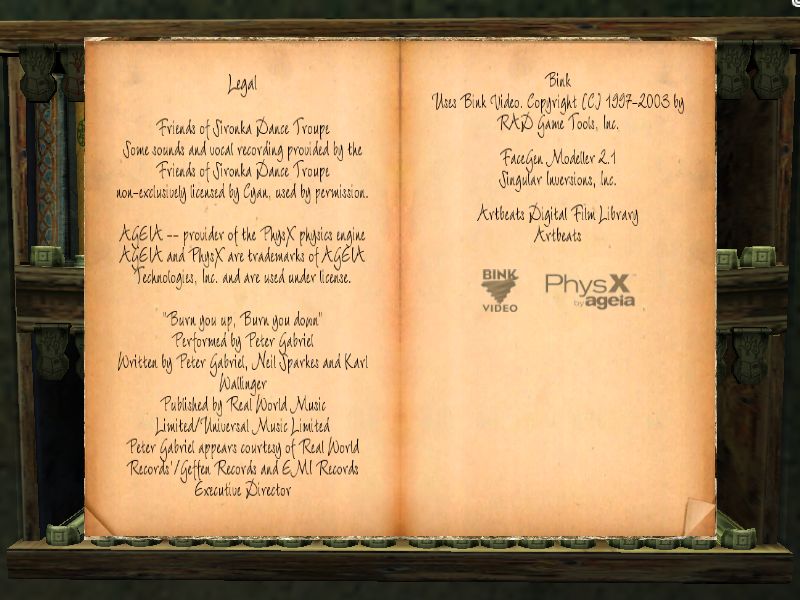 Legal
Friends of Sironka Dance Troupe
Some sounds and vocal recording provided by the
Friends of Sironka Dance Troupe
non-exclusively licensed by Cyan, used by permission.
AGEIA -- provider of the PhysX physics engine
AGEIA and PhysX are trademarks of AGEIA
Technologies, Inc. and are used under license.
"Burn you up, Burn you down"
Performed by Peter Gabriel
Written by Peter Gabriel, Neil Sparkes and Karl
Wallinger
Published by Real World Music
Limited/Universal Music Limited
Peter Gabriel appears courtesy of Real World
Records'/Geffen Records and EMI Records
Executive Director
Bink
Uses Bink Video. Copyright (C) 1997-2003 by
RAD Game Tools, Inc.
FaceGen Modeller 2.1
Singular Inversions, Inc.
Artbeats Digital Film Library
Artbeats
BINK
VIDEO
PhysX
by ageia